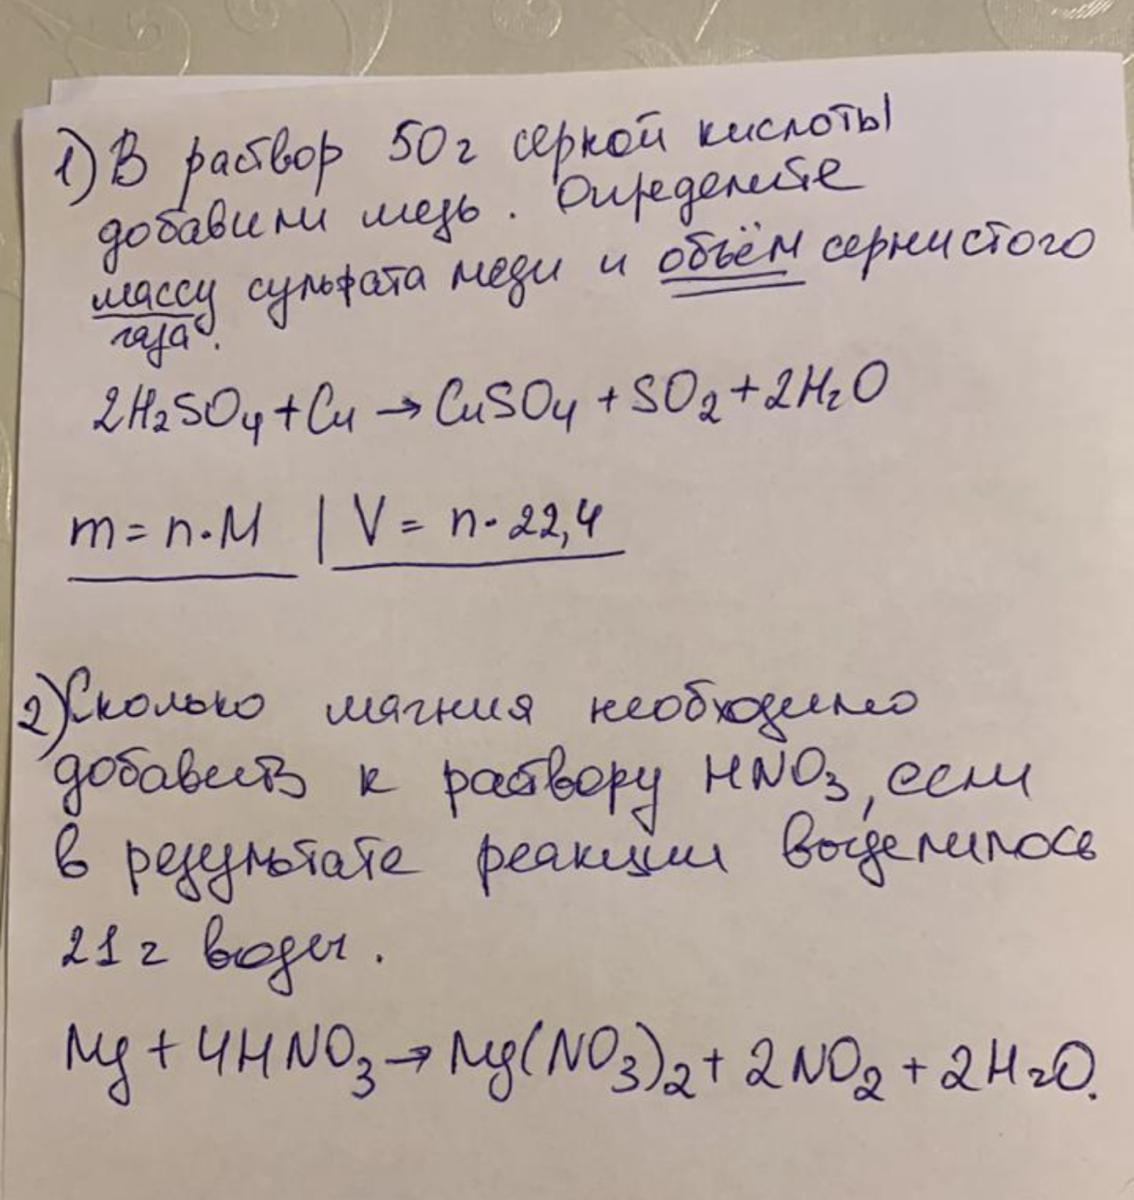 1) В раствор 50 г серной кислоты
добавили медь. Определите
массу сульфата меди и объём сернистого
газа.
2H₂SO₄ + Cu → CuSO₄ + SO₂ + 2H₂O
m = n · M | V = n · 22,4
2) Сколько магния необходимо
добавить к раствору HNO₃, если
в результате реакции выделилось
21 г воды.
Mg + 4HNO₃ → Mg(NO₃)₂ + 2NO₂ + 2H₂O.